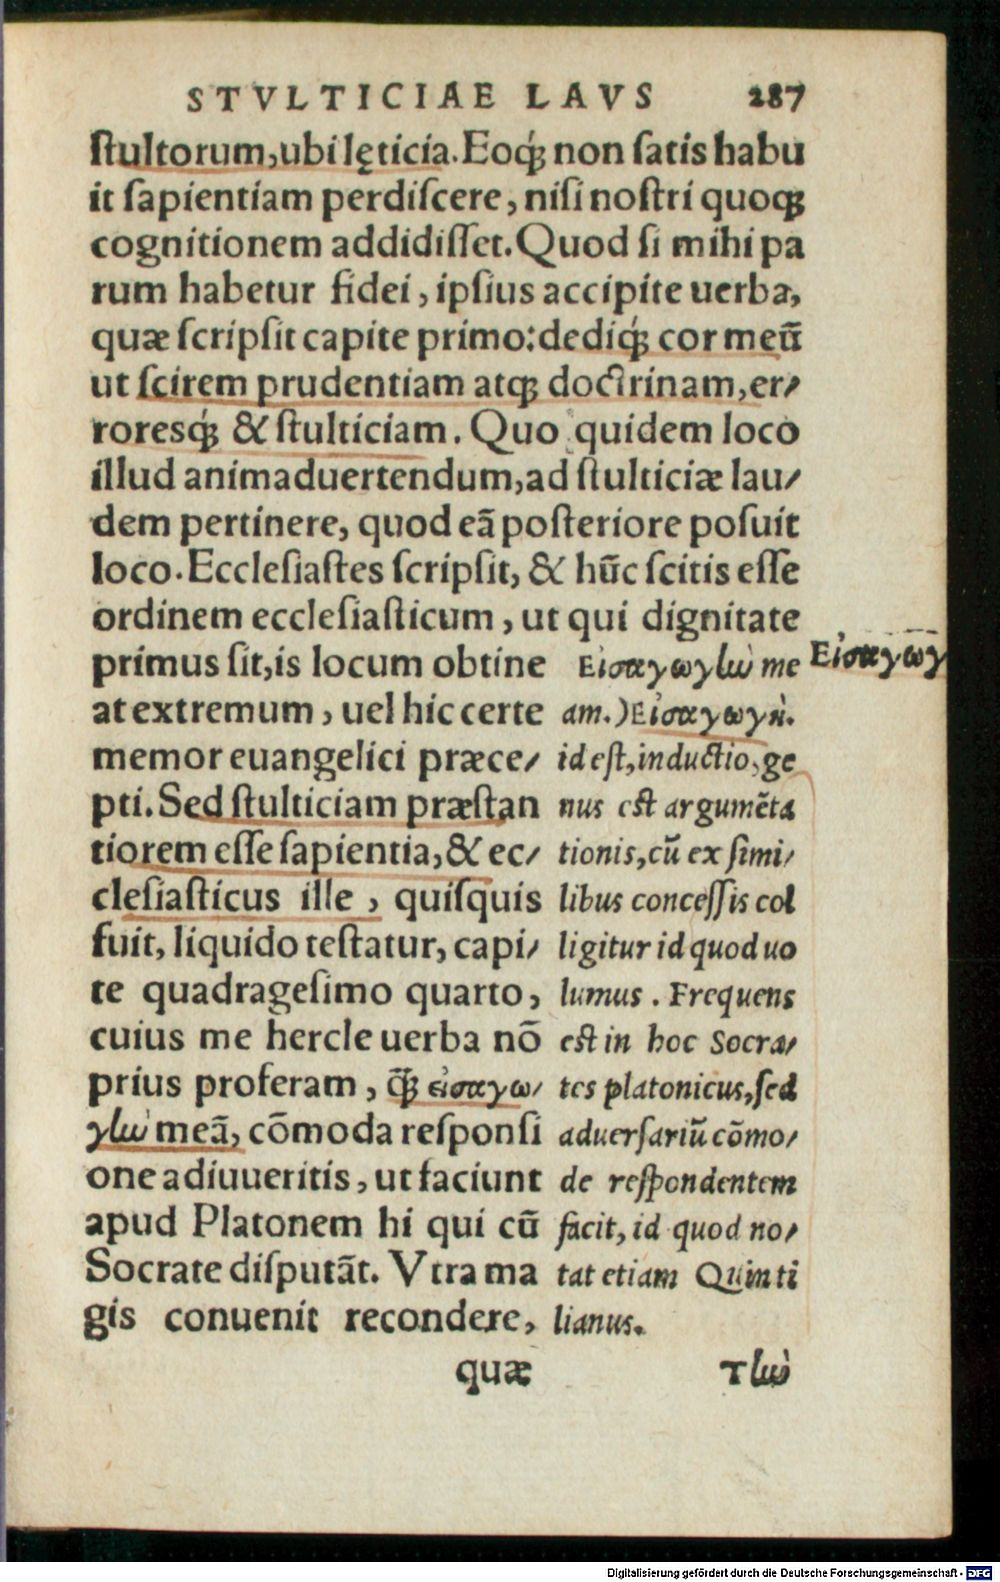 STVLTICIAE LAVS 287
stultorum, ubi lęticia. Eoq́; non satis habu
it sapientiam perdiscere, nisi nostri quoq;
cognitionem addidisset. Quod si mihi pa
rum habetur fidei, ipsius accipite uerba,
quæ scripsit capite primo: dediq́; cor meũ
ut scirem prudentiam atq; doctrinam, er/
roresq́; & stulticiam. Quo quidem loco
illud animaduertendum, ad stulticiæ lau/
dem pertinere, quod eã posteriore posuit
loco. Ecclesiastes scripsit, & hũc scitis esse
ordinem ecclesiasticum, ut qui dignitate
primus sit, is locum obtine
at extremum, uel hic certe
memor euangelici præce/
pti. Sed stulticiam præstan
tiorem esse sapientia, & ec/
clesiasticus ille, quisquis
fuit, liquido testatur, capi/
te quadragesimo quarto,
cuius me hercle uerba nõ
prius proferam, q̃; εἰσαγω/
γὴν meã, cõmoda responsi
one adiuueritis, ut faciunt
apud Platonem hi qui cũ
Socrate disputãt. Vtra ma
gis conuenit recondere,
quæ
Εἰσαγωγὴν me
am.) Εἰσαγωγὴ.
id est, inductio, ge
nus est argumẽta
tionis, cũ ex simi/
libus concessis col
ligitur id quod uo
lumus. Frequens
est in hoc Socra/
tes platonicus, sed
aduersariũ cõmo/
de respondentem
facit, id quod no/
tat etiam Quinti
lianus.
Τὴν
Εἰσαγωγ
Digitalisierung gefördert durch die Deutsche Forschungsgemeinschaft - DFG